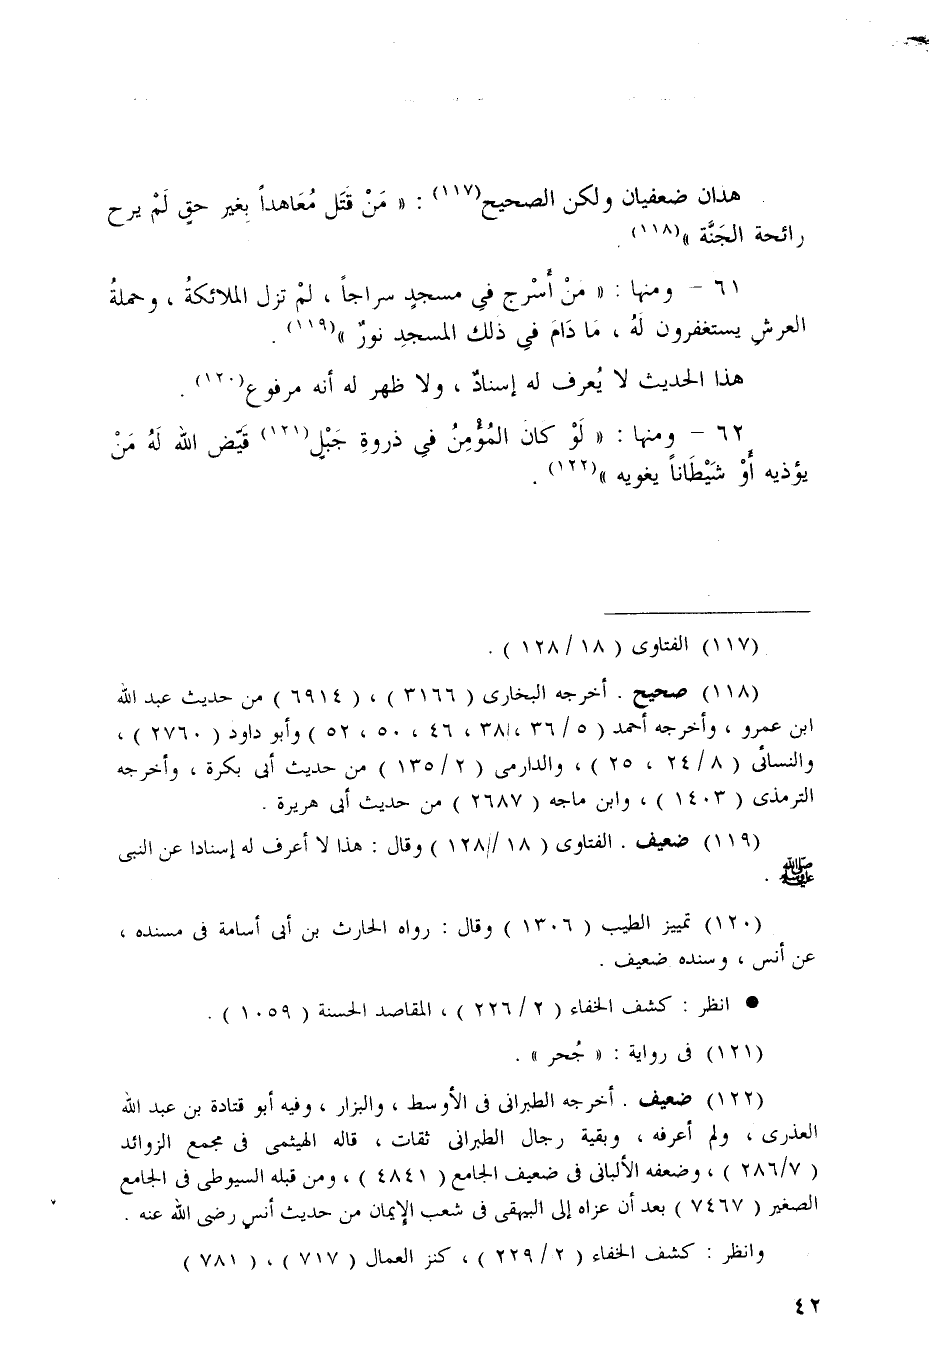 هذان ضعفيان ولكن الصحيح(١١٧) : « مَنْ قَتَل مُعَاهداً بغير حقٍ لَمْ يرح
رائحة الجَنَّة »(١١٨) .
٦١ - ومنها : « مَنْ أَسْرج في مسجدٍ سراجاً ، لمْ تزل الملائكةُ ، وحملةُ
العرشِ يستغفرون لَهُ ، مَا دَامَ في ذلك المسجدِ نورٌ »(١١٩) .
هذا الحديث لا يُعرف له إسنادٌ ، ولا ظهر له أنه مرفوع(١٢٠) .
٦٢ - ومنها : « لَوْ كان المُؤْمِنُ في ذروةِ جَبْلٍ(١٢١) قَيّض الله لَهُ مَنْ
يؤذيه أَوْ شَيْطَاناً يغويه »(١٢٢) .
(١١٧) الفتاوى ( ١٨ / ١٢٨ ) .
(١١٨) صحيح . أخرجه البخارى ( ٣١٦٦ ) ، ( ٦٩١٤ ) من حديث عبد الله
ابن عمرو ، وأخرجه أحمد ( ٥ / ٣٦ ، ٣٨ ، ٤٦ ، ٥٠ ، ٥٢ ) وأبو داود ( ٢٧٦٠ ) ،
والنسائى ( ٨ / ٢٤ ، ٢٥ ) ، والدارمى ( ٢ / ١٣٥ ) من حديث أبى بكرة ، وأخرجه
الترمذى ( ١٤٠٣ ) ، وابن ماجه ( ٢٦٨٧ ) من حديث أبى هريرة .
(١١٩) ضعيف . الفتاوى ( ١٨ / ١٢٨ ) وقال : هذا لا أعرف له إسنادا عن النبى
ﷺ .
(١٢٠) تمييز الطيب ( ١٣٠٦ ) وقال : رواه الحارث بن أبى أسامة فى مسنده ،
عن أنس ، وسنده ضعيف .
● انظر : كشف الخفاء ( ٢ / ٢٢٦ ) ، المقاصد الحسنة ( ١٠٥٩ ) .
(١٢١) فى رواية : « جُحر » .
(١٢٢) ضعيف . أخرجه الطبرانى فى الأوسط ، والبزار ، وفيه أبو قتادة بن عبد الله
العذرى ، ولم أعرفه ، وبقية رجال الطبرانى ثقات ، قاله الهيثمى فى مجمع الزوائد
( ٢٨٦/٧ ) ، وضعفه الألبانى فى ضعيف الجامع ( ٤٨٤١ ) ، ومن قبله السيوطى فى الجامع
الصغير ( ٧٤٦٧ ) بعد أن عزاه إلى البيهقى فى شعب الإيمان من حديث أنس رضى الله عنه .
وانظر : كشف الخفاء ( ٢ / ٢٢٩ ) ، كنز العمال ( ٧١٧ ) ، ( ٧٨١ )
٤٢